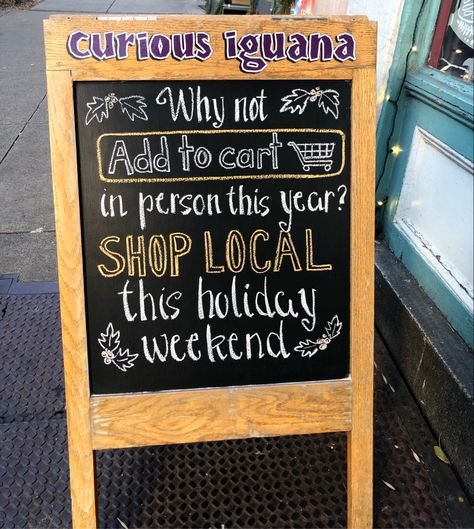 curious iguana
Why not
Add to cart
in person this year?
SHOP LOCAL
this holiday
weekend